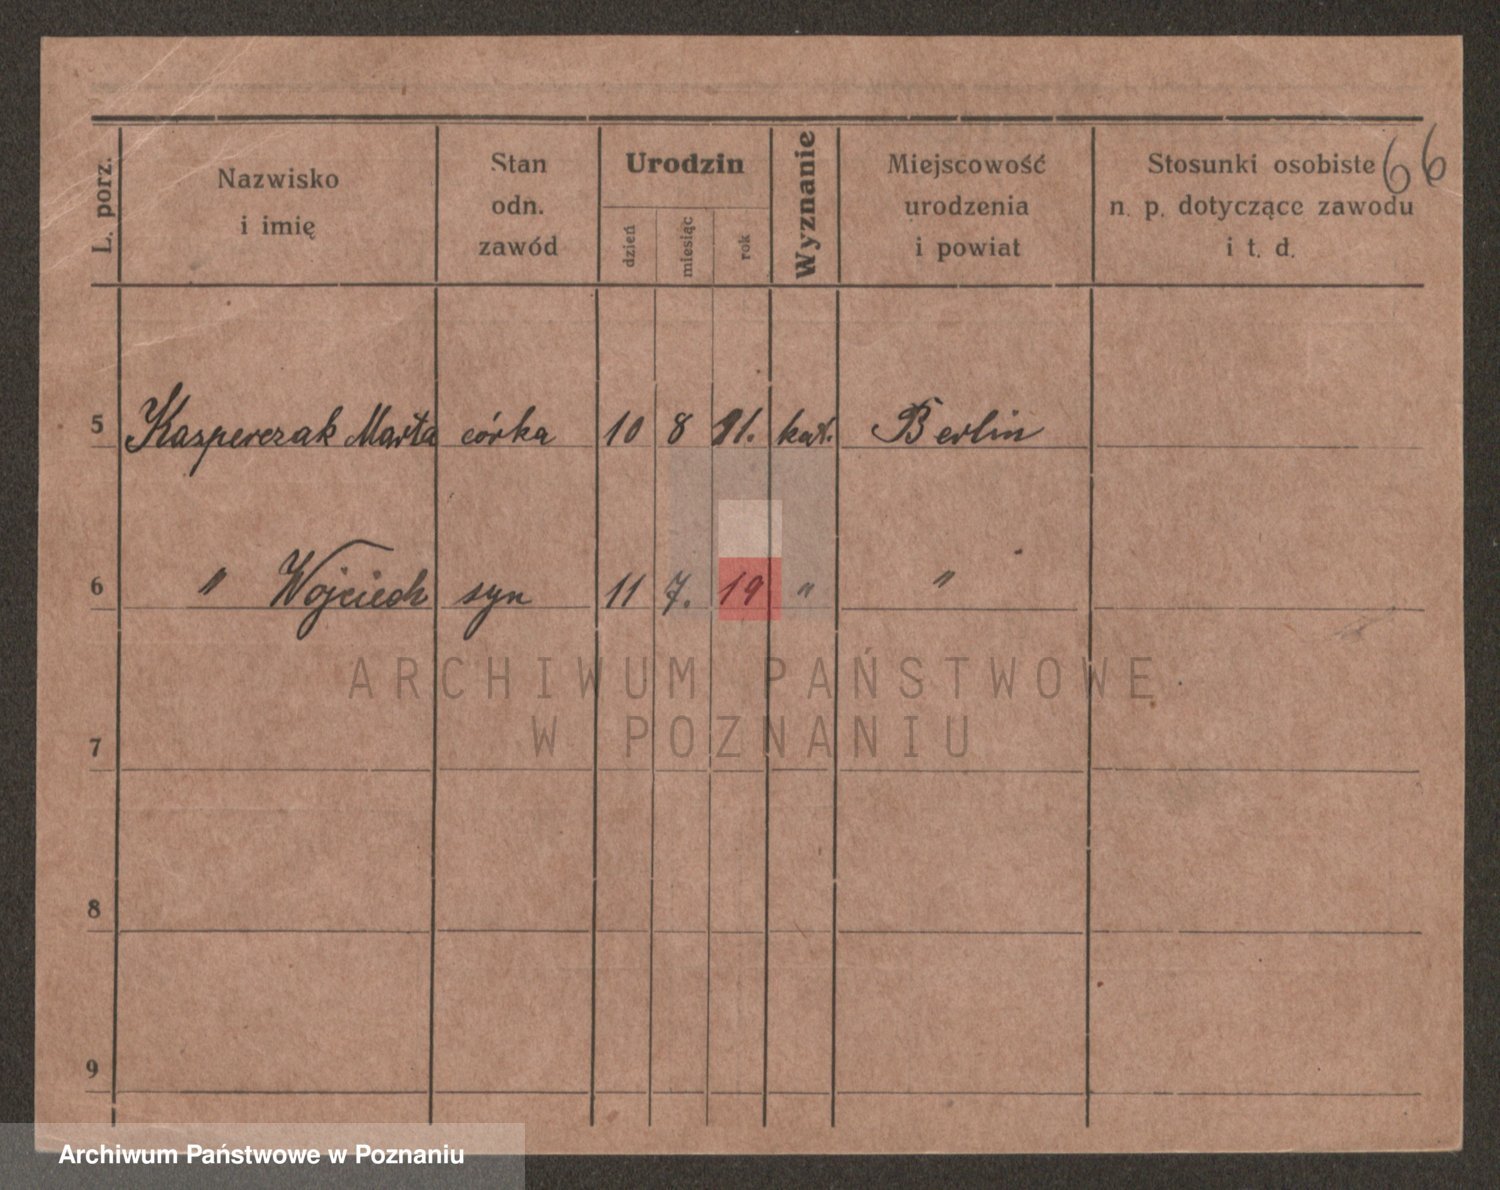 66
L. porz. Nazwisko i imię Stan odn. zawód Urodzin dzień miesiąc rok Wyznanie Miejscowość urodzenia i powiat Stosunki osobiste n. p. dotyczące zawodu i t. d.
5 Kasperczak Marta córka 10 8 11. kat. Berlin
6 " Wojciech syn 11 7. 19 " "
ARCHIWUM PAŃSTWOWE
W POZNANIU
7
8
9
Archiwum Państwowe w Poznaniu